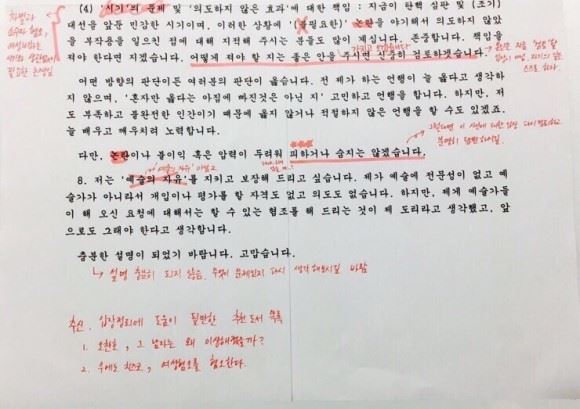 (4) 시기의 문제 및 '의도하지 않은 효과'에 대한 책임 : 지금이 탄핵 심판 및 (조기)
대선을 앞둔 민감한 시기이며, 이러한 상황에 '(불필요한)' 논란을 야기해서 의도하지 않았
을 부작용을 일으킨 점에 대해 지적해 주시는 분들도 많이 계십니다. 존중합니다. 책임을
져야 한다면 지겠습니다. 어떻게 져야 할 지는 좋은 안을 주시면 신중히 검토하겠습니다.
어떤 방향의 판단이든 여러분의 판단이 옳습니다. 전 제가 하는 언행이 늘 옳다고 생각하
지 않으며, '혼자만 옳다는 아집에 빠진것은 아닌 지' 고민하고 언행을 합니다. 하지만, 저
도 부족하고 불완전한 인간이기 때문에 옳지 않거나 적절하지 않은 언행을 할 수도 있겠죠.
늘 배우고 깨우치려 노력합니다.
다만, 논란이나 불이익 혹은 압력이 두려워 피하거나 숨지는 않겠습니다.
8. 저는 '예술의 자유'를 지키고 보장해 드리고 싶습니다. 제가 예술에 전문성이 없고 예
술가가 아니라서 개입이나 평가를 할 자격도 없고 의도도 없습니다. 하지만, 제게 예술가들
이 해 오신 요청에 대해서는 할 수 있는 협조를 해 드리는 것이 제 도리라고 생각했고, 앞
으로도 그래야 한다고 생각합니다.
충분한 설명이 되었기 바랍니다. 고맙습니다.
↳ 설명 충분히 되지 않음. 무엇이 문제인지 다시 생각해보시길 바람
추신. 입장정리에 도움이 될만한 추천 도서 목록
1. 오찬호, 그 남자는 왜 이상해졌을까?
2. 우에노 치즈코, 여성혐오를 혐오한다.